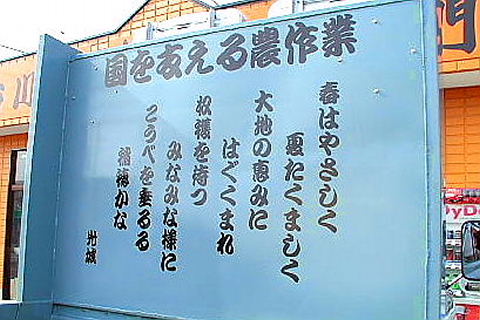 国を支える農作業
春はやさしく
夏たくましく
大地の恵みに
はぐくまれ
収穫を待つ
みなみな様に
こうべを垂るる
稲穂かな
川
門
DyDo